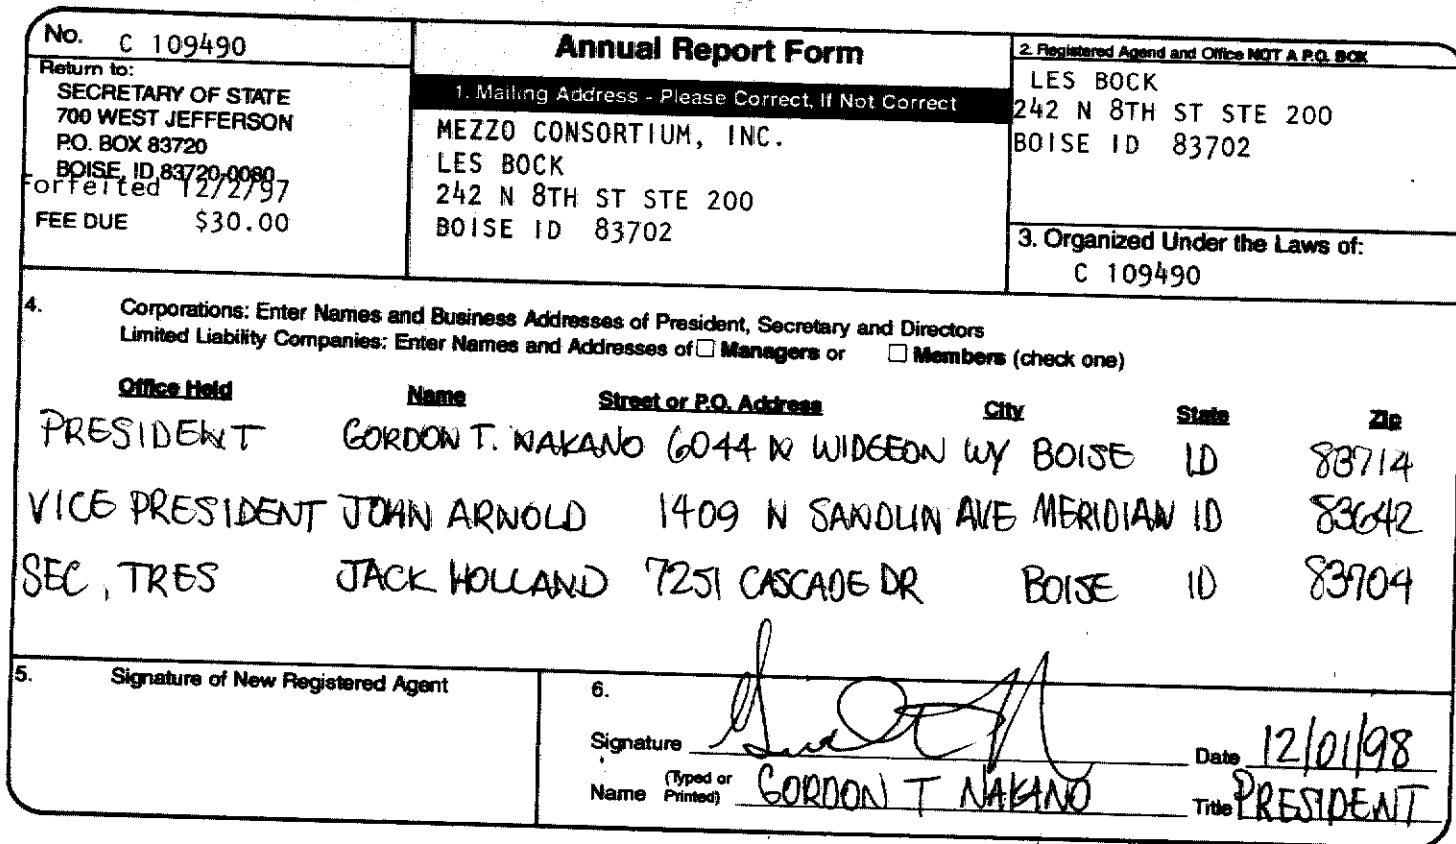 No. C 109490
Return to:
SECRETARY OF STATE
700 WEST JEFFERSON
P.O. BOX 83720
BOISE, ID 83720-0080
Forfeited 12/2/97
FEE DUE $30.00
Annual Report Form
1. Mailing Address - Please Correct, If Not Correct
MEZZO CONSORTIUM, INC.
LES BOCK
242 N 8TH ST STE 200
BOISE ID 83702
2. Registered Agend and Office NOT A P.O. BOX
LES BOCK
242 N 8TH ST STE 200
BOISE ID 83702
3. Organized Under the Laws of:
C 109490
4. Corporations: Enter Names and Business Addresses of President, Secretary and Directors
Limited Liability Companies: Enter Names and Addresses of ☐ Managers or ☐ Members (check one)
Office Held Name Street or P.O. Address City State Zip
PRESIDENT GORDON T. NAKANO 6044 N WIDGEON WY BOISE ID 83714
VICE PRESIDENT JOHN ARNOLD 1409 N SANDLIN AVE MERIDIAN ID 83642
SEC, TRES JACK HOLLAND 7251 CASCADE DR BOISE ID 83704
5. Signature of New Registered Agent
6.
Signature Date 12/01/98
Name (Typed or Printed) GORDON T NAKANO Title PRESIDENT